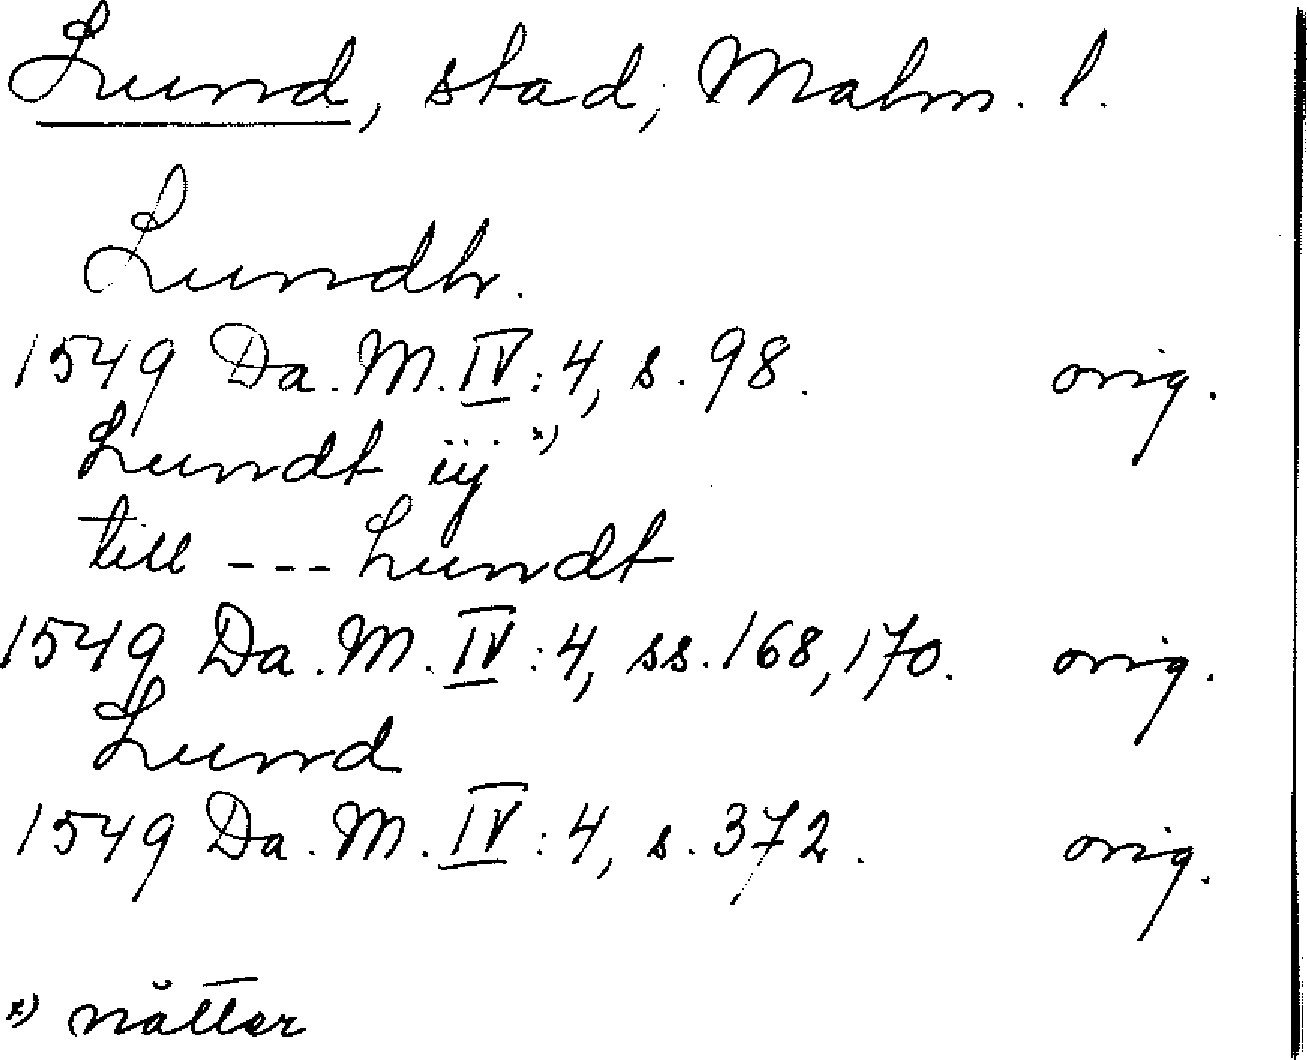 Lund, stad, Malm. l.
Lundh.
1549 Da. M. IV: 4, s. 98. orig.
Lundt iij *)
till --- Lundt
1549 Da. M. IV: 4, ss. 168, 170. orig.
Lund
1549 Da. M. IV: 4, s. 372. orig.
*) nätter